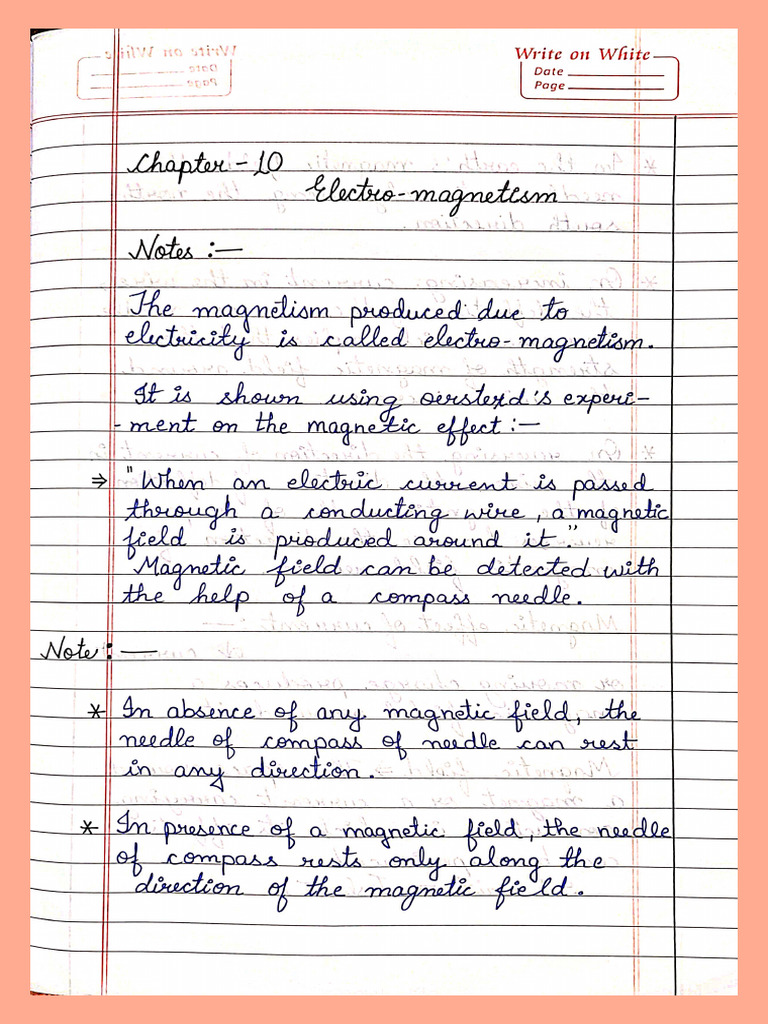 Write on White
Date
Page
Chapter - 10
Electro-magnetism
Notes :—
The magnetism produced due to
electricity is called electro-magnetism.
It is shown using oersterd's experi-
- ment on the magnetic effect :—
⇒ "When an electric current is passed
through a conducting wire, a magnetic
field is produced around it."
Magnetic field can be detected with
the help of a compass needle.
Note :—
* In absence of any magnetic field, the
needle of compass of needle can rest
in any direction.
* In presence of a magnetic field, the needle
of compass rests only along the
direction of the magnetic field.